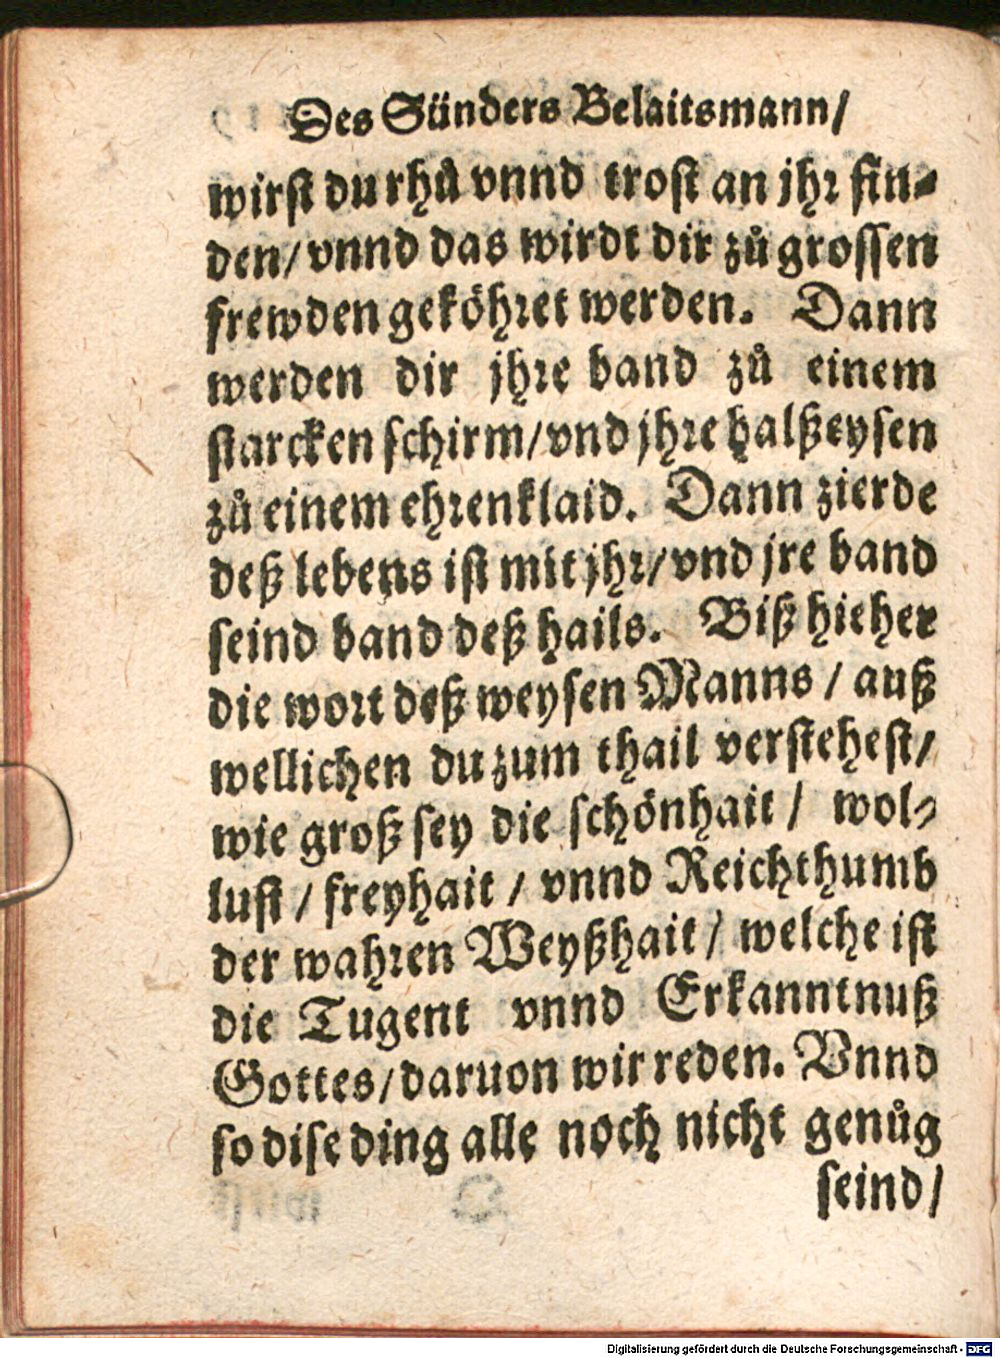 Des Sünders Belaitsmann/
wirst du rhů vnnd trost an jhr fin-
den/ vnnd das wirdt dir zů grossen
frewden geköhret werden. Dann
werden dir jhre band zů einem
starcken schirm/ vnd jhre halßeysen
zů einem ehrenklaid. Dann zierde
deß lebens ist mit jhr/ vnd jre band
seind band deß hails. Biß hieher
die wort deß weysen Manns / auß
wellichen du zum thail verstehest/
wie groß sey die schönhait / wol-
lust / freyhait / vnnd Reichthumb
der wahren Weyßhait / welche ist
die Tugent vnnd Erkanntnuß
Gottes/ daruon wir reden. Vnnd
so dise ding alle noch nicht genůg
seind/
Digitalisierung gefördert durch die Deutsche Forschungsgemeinschaft - DFG